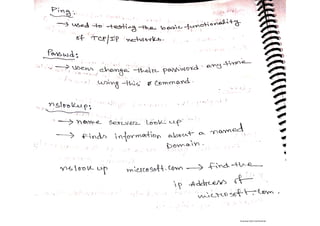 Ping:
→ used to testing the basic functionality
of TCP/IP networks.
Passwd:
→ users change their password any time
using this command.
nslookup:
→ name server look up
→ Finds information about a named
Domain.
nslook up microsoft.com → find the
ip Address of
microsoft.com.